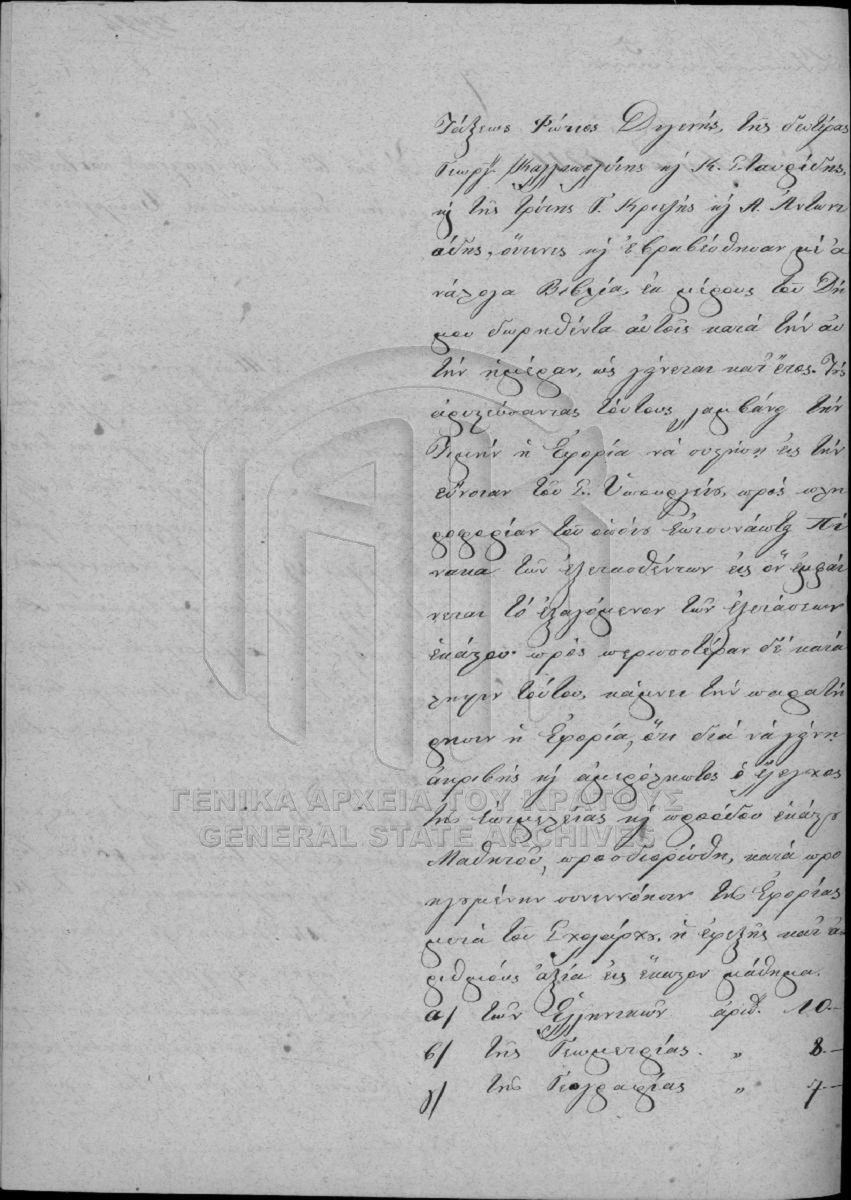 τάξεως Φώτιος Δηλενής, τῆς δευτέρας
Γεωργ. Καλλιπολίτης κ̀ Κ. Σταυρίδης,
κ̀ τῆς τρίτης Γ. Κριτλῆς κ̀ Α. Ἀντωνι
άδης, οἵτινες κ̀ ἐβραβεύθησαν μὲ ἀ
νάλογα Βιβλία, ἐκ μέρους τοῦ Δή
μου δωρηθέντα αὐτοῖς κατὰ τὴν αὐ
τὴν ἡμέραν, ὡς γίνεται κατ' ἔτος. Τοὺς
ἀριστεύσαντας τούτους λαμβάνει τὴν
Τιμὴν ἡ Ἐφορία νὰ συστήσῃ εἰς τὴν
εὔνοιαν τοῦ Σ. Ὑπουργείου, πρὸς πλη
ροφορίαν τοῦ ὁποίου ἐπισυνάπτει Πί
νακα τῶν ἐξετασθέντων εἰς ὃν ἐμφαί
νεται τὸ ἐξαγόμενον τῶν ἐξετάσεων
ἑκάστου· πρὸς περισσοτέραν δὲ κατά
ληψιν τούτου, κάμνει τὴν παρατή
ρησιν ἡ Ἐφορία, ὅτι διὰ νὰ γίνῃ
ἀκριβὴς κ̀ ἀμερόληπτος ὁ ἔλεγχος
τῆς ἐπιμελείας κ̀ προόδου ἑκάστου
Μαθητοῦ, προσδιωρίσθη, κατὰ προ
ηγουμένην συνεννόησιν τῆς Ἐφορίας
μετὰ τοῦ Σχολάρχου, ἡ ἐφεξῆς κατ' ἀ
ριθμοὺς ἀξία εἰς ἕκαστον μάθημα.
α/ τῶν Ἑλληνικῶν ἀριθ. 10.—
β/ τῆς Γεωμετρίας. „ 8.—
γ/ τῆς Γεογραφίας „ 7—
ΓΕΝΙΚΑ ΑΡΧΕΙΑ ΤΟΥ ΚΡΑΤΟΥΣ
GENERAL STATE ARCHIVES